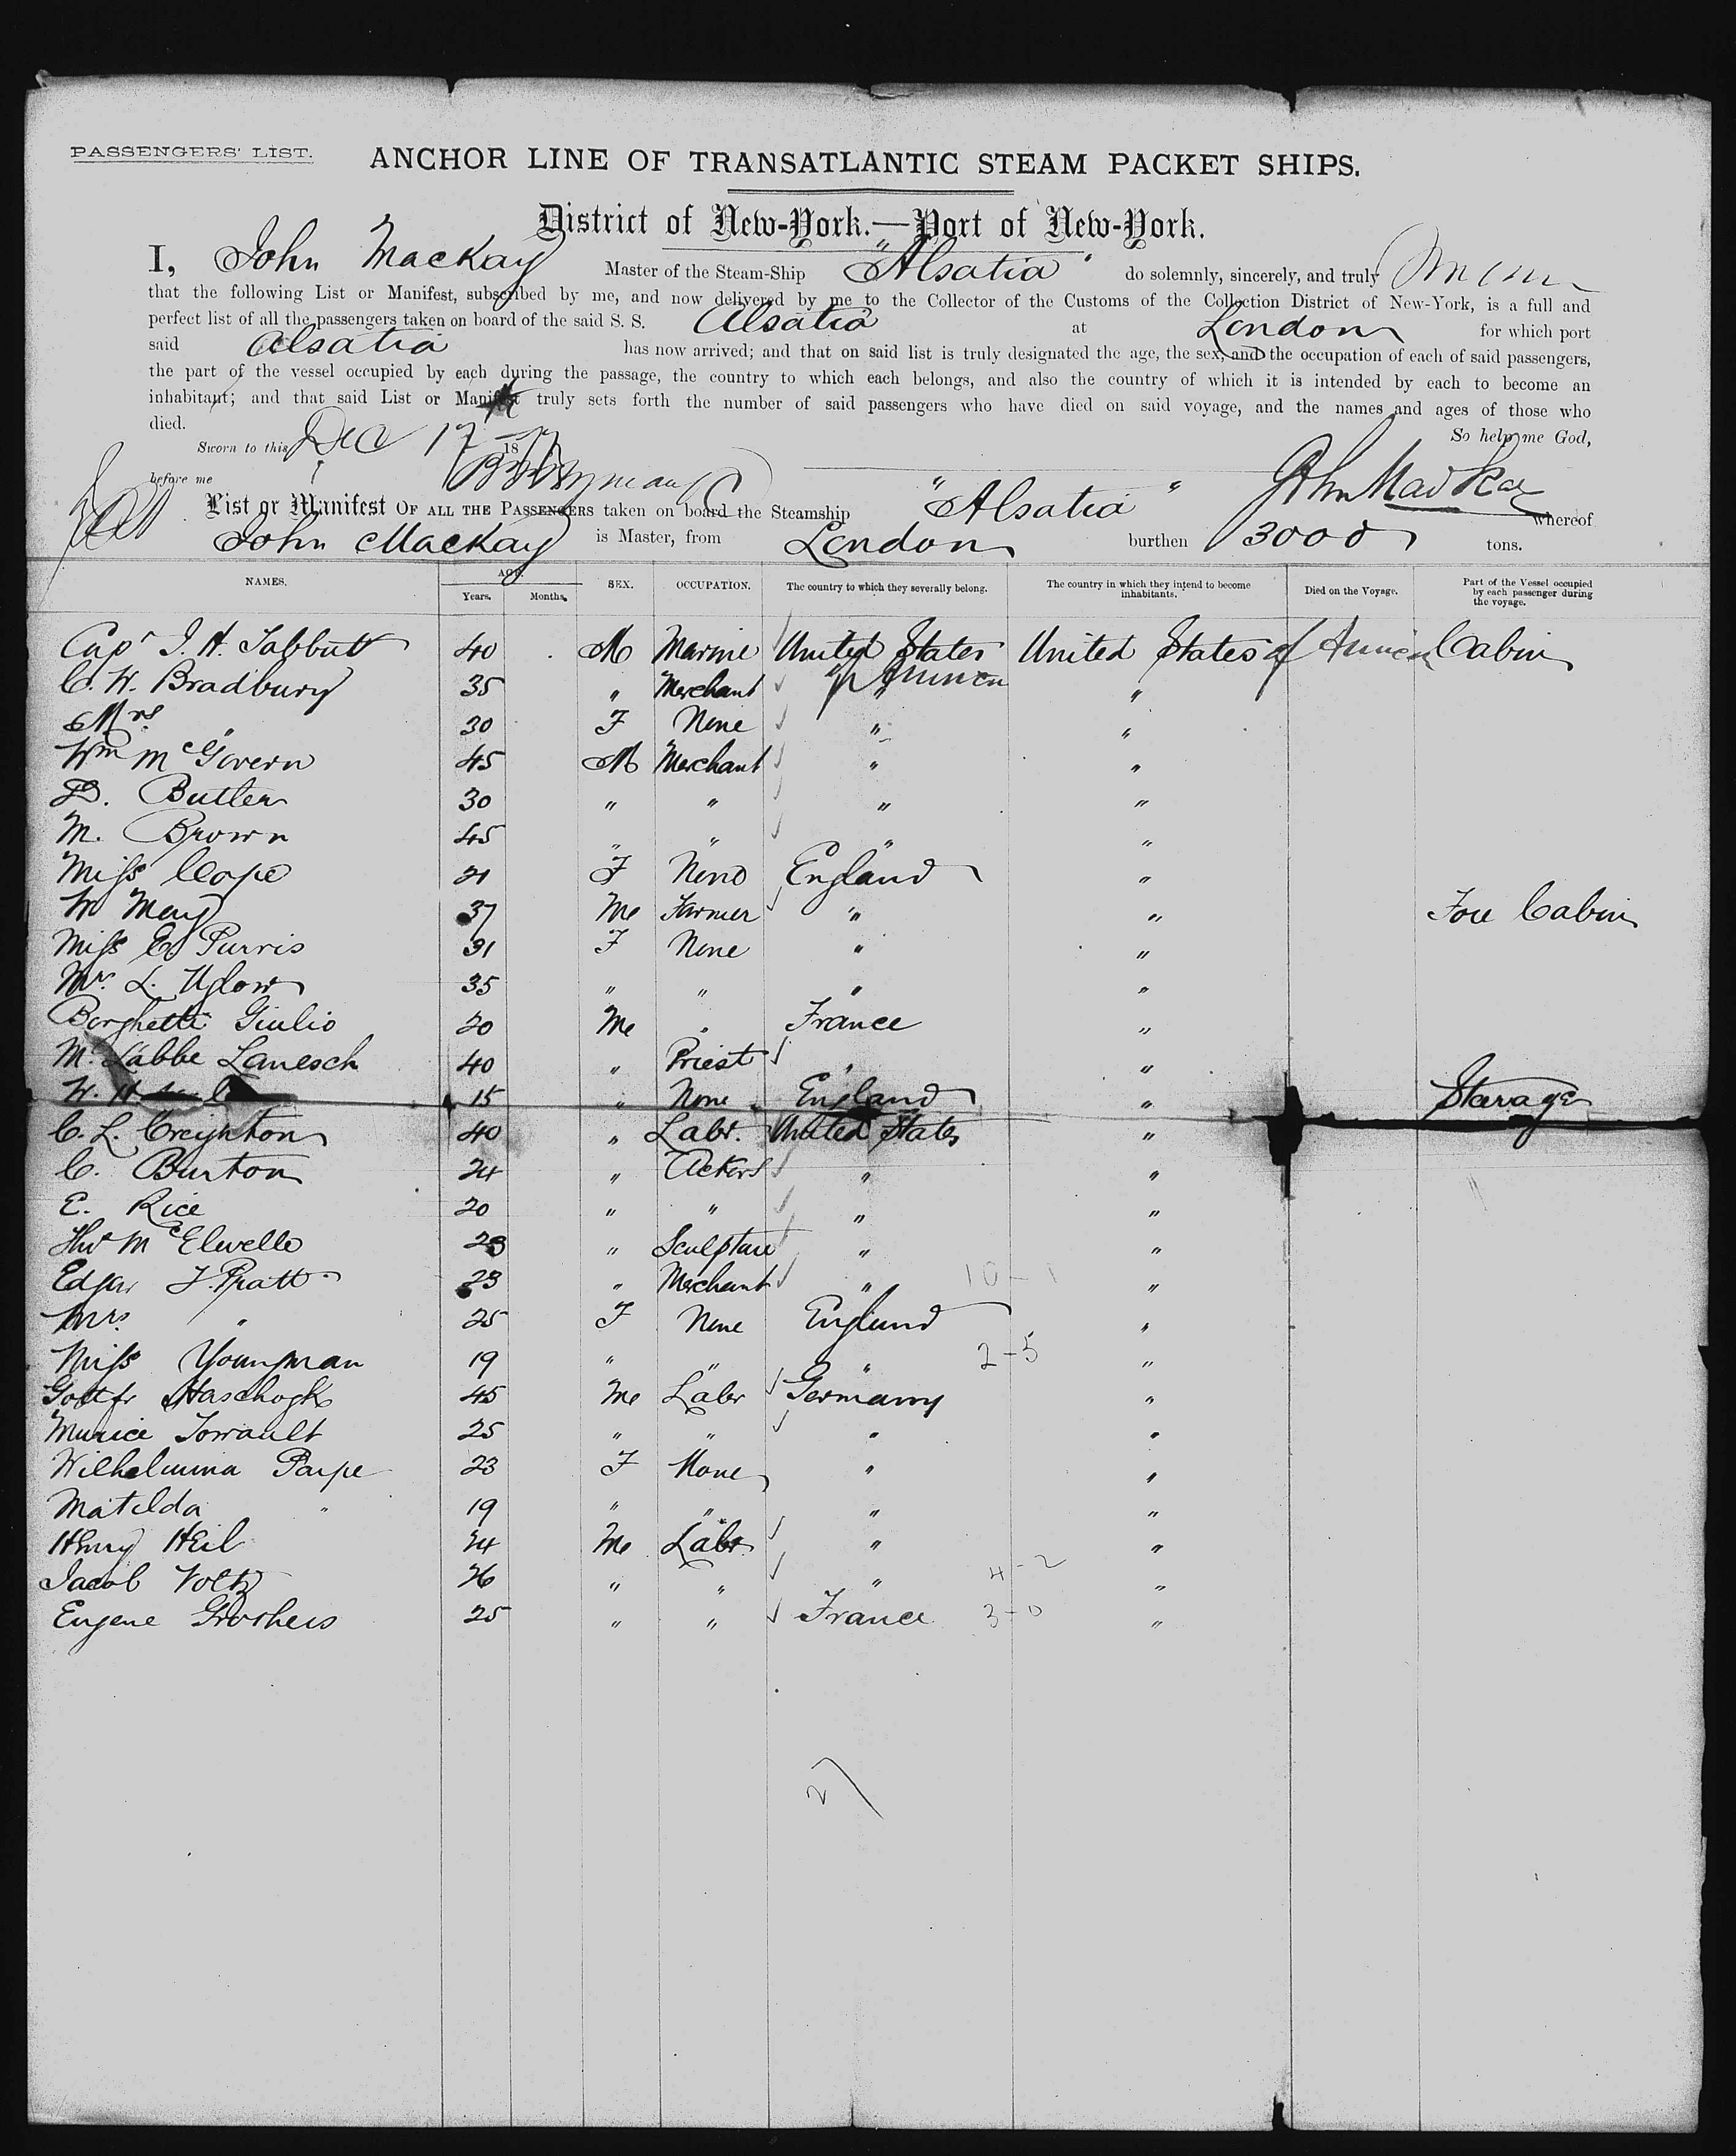 PASSENGERS' LIST.
ANCHOR LINE OF TRANSATLANTIC STEAM PACKET SHIPS.
District of New-York.—Port of New-York.
I, John Mackay Master of the Steam-Ship "Alsatia" do solemnly, sincerely, and truly
that the following List or Manifest, subscribed by me, and now delivered by me to the Collector of the Customs of the Collection District of New-York, is a full and
perfect list of all the passengers taken on board of the said S. S. Alsatia at London for which port
said Alsatia has now arrived; and that on said list is truly designated the age, the sex, and the occupation of each of said passengers,
the part of the vessel occupied by each during the passage, the country to which each belongs, and also the country of which it is intended by each to become an
inhabitant; and that said List or Manifest truly sets forth the number of said passengers who have died on said voyage, and the names and ages of those who
died. So help me God,
Sworn to this Dec 17 18
before me John Mackay
List or Manifest OF ALL THE PASSENGERS taken on board the Steamship "Alsatia" whereof
John Mackay is Master, from London burthen 3000 tons.
NAMES. AGE. Years. Months. SEX. OCCUPATION. The country to which they severally belong. The country in which they intend to become inhabitants. Died on the Voyage. Part of the Vessel occupied by each passenger during the voyage.
Capt J. H. Tabbutt 40 M Marine United States United States of America Cabin
C. W. Bradbury 35 " Merchant of America "
Mrs " 30 F None " "
Wm McGovern 45 M Merchant " "
D. Butler 30 " " " "
M. Brown 45 " " " "
Miss Cope 21 F None England "
W May 37 M Farmer " " Fore Cabin
Miss E Purris 31 F None " "
Mrs L. Uglow 35 " " " "
Borghetti Giulio 20 M " France "
M. Labbe Lanesch 40 " Priest " "
W. 15 " None England " Steerage
C. L. Creighton 40 " Labr. United States "
C. Burton 24 " Actors " "
E. Rice 20 " " " "
Thos McElwelle 23 " Sculpture " "
Edgar J. Pratt 23 " Merchant " " 10-1
Mrs " 25 F None England "
Miss Youngman 19 " " " 2-5 "
Gottfr Haschogk 45 M Labr Germany "
Maurice Torrault 25 " " " "
Wilhelmina Paipe 23 F None " "
Matilda " 19 " " " "
Henry Heil 24 M Labr " "
Jacob Voltz 26 " " " 4-2 "
Eugene Groshens 25 " " France 3-0 "
27